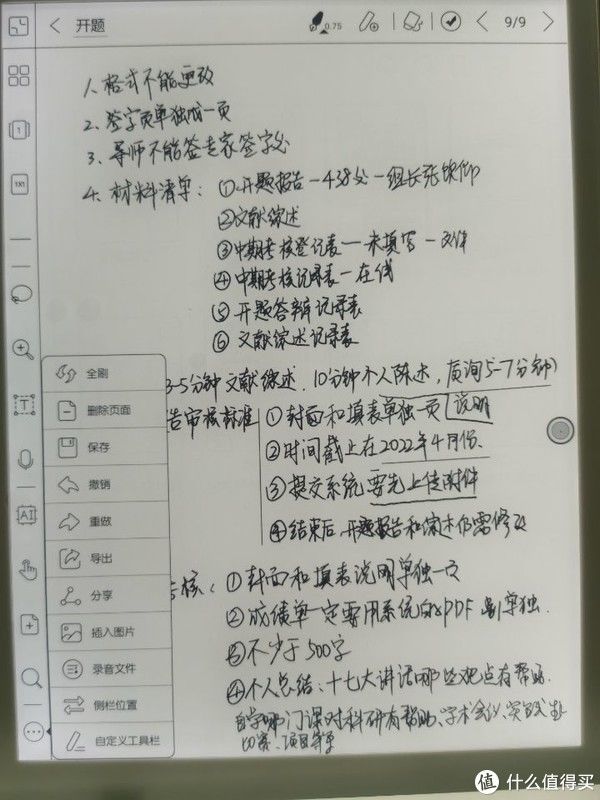 开题
0.75
9/9
1、格式不能更改
2、签字页单独成一页
3、导师不能签专家签字处
4、材料清单：①开题报告—438处—组长张
②文献综述
③中期考核登记表—未填写—文件
④中期考核记录表—在线
⑤开题答辩记录表
⑥文献综述记录表
3-5分钟文献综述，10分钟个人陈述，质询5-7分钟）
告审核标准
①封面和填表单独一页 说明
②时间截止在2022年4月份.
③提交系统要先上传附件
④结束后，开题报告和综述仍需修改
考核：①封面和填表说明单独一页
②成绩单一定要用系统的PDF 单独.
③不少于500字
④个人总结：十七大讲话哪些观点有帮助.
自学哪门课对科研有帮助、学术会议、实践
比赛、项目等
全刷
删除页面
保存
撤销
重做
导出
分享
插入图片
录音文件
侧栏位置
自定义工具栏
1
1X1
T
AI
值 什么值得买